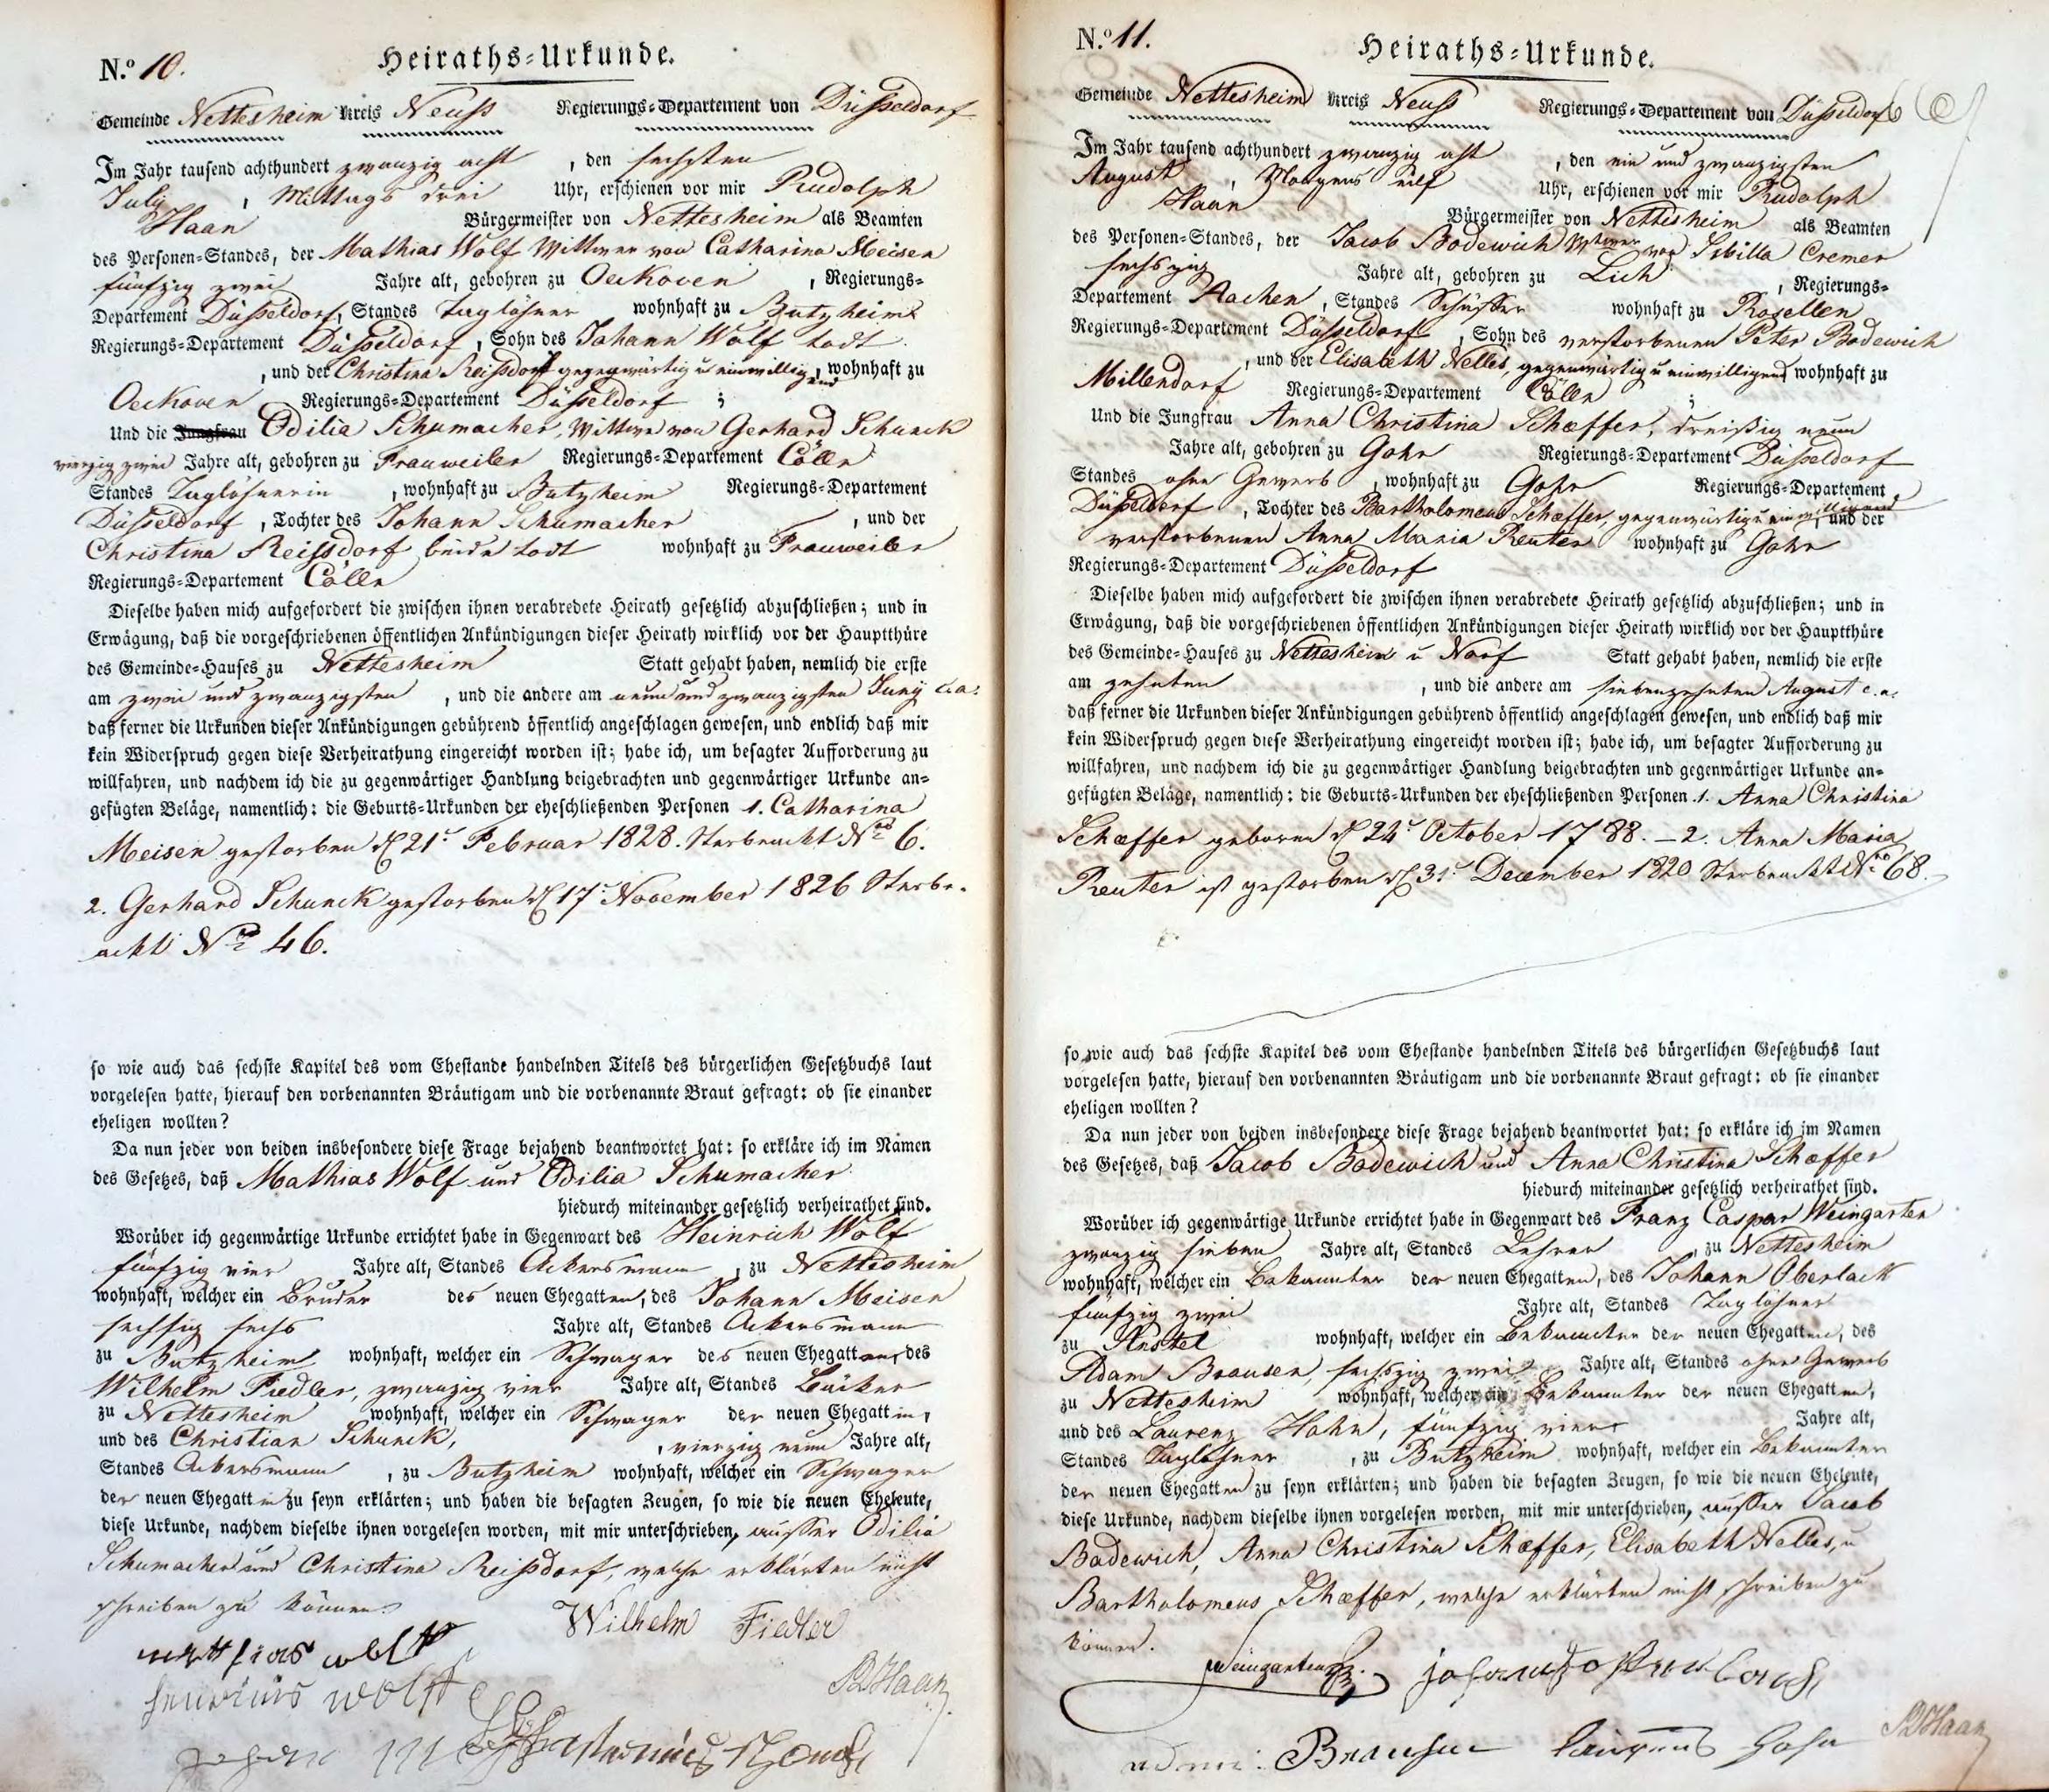 N.º 10.
Heiraths-Urkunde.
Gemeinde Nettesheim Kreis Neuss Regierungs-Departement von Düsseldorf
Im Jahr tausend achthundert zwanzig acht, den sechsten
July, Mittags drei Uhr, erschienen vor mir Rudolph
Haan Bürgermeister von Nettesheim als Beamten
des Personen-Standes, der Mathias Wolf Wittwer von Catharina Meisen
fünfzig zwei Jahre alt, gebohren zu Oeckoven, Regierungs-
Departement Düsseldorf, Standes Taglöhner wohnhaft zu Butzheim
Regierungs-Departement Düsseldorf, Sohn des Johann Wolf todt
, und der Christina Reissdorf gegenwärtig u einwilligend, wohnhaft zu
Oeckoven Regierungs-Departement Düsseldorf ;
Und die Jungfrau Odilia Schumacher, Wittwe von Gerhard Schunck
vierzig zwei Jahre alt, gebohren zu Frauweiler Regierungs-Departement Cölln
Standes Taglöhnerin, wohnhaft zu Butzheim Regierungs-Departement
Düsseldorf, Tochter des Johann Schumacher, und der
Christina Reissdorf beide todt wohnhaft zu Frauweiler
Regierungs-Departement Cölln
Dieselbe haben mich aufgefordert die zwischen ihnen verabredete Heirath gesetzlich abzuschließen; und in
Erwägung, daß die vorgeschriebenen öffentlichen Ankündigungen dieser Heirath wirklich vor der Hauptthüre
des Gemeinde-Hauses zu Nettesheim Statt gehabt haben, nemlich die erste
am zwei und zwanzigsten, und die andere am neun und zwanzigsten Juny c.a.
daß ferner die Urkunden dieser Ankündigungen gebührend öffentlich angeschlagen gewesen, und endlich daß mir
kein Widerspruch gegen diese Verheirathung eingereicht worden ist; habe ich, um besagter Aufforderung zu
willfahren, und nachdem ich die zu gegenwärtiger Handlung beigebrachten und gegenwärtiger Urkunde an-
gefügten Beläge, namentlich: die Geburts-Urkunden der eheschließenden Personen 1. Catharina
Meisen gestorben d 21t Februar 1828. Sterbeackt No 6.
2. Gerhard Schunck gestorben d 17t November 1826 Sterbe-
ackt No 46.
so wie auch das sechste Kapitel des vom Ehestande handelnden Titels des bürgerlichen Gesetzbuchs laut
vorgelesen hatte, hierauf den vorbenannten Bräutigam und die vorbenannte Braut gefragt: ob sie einander
eheligen wollten?
Da nun jeder von beiden insbesondere diese Frage bejahend beantwortet hat: so erkläre ich im Namen
des Gesetzes, daß Mathias Wolf und Odilia Schumacher
hiedurch miteinander gesetzlich verheirathet sind.
Worüber ich gegenwärtige Urkunde errichtet habe in Gegenwart des Heinrich Wolf
fünfzig vier Jahre alt, Standes Ackersmann, zu Nettesheim
wohnhaft, welcher ein Bruder des neuen Ehegatten, des Johann Meisen
sechsig sechs Jahre alt, Standes Ackersmann
zu Butzheim wohnhaft, welcher ein Schwager des neuen Ehegatten, des
Wilhelm Fiedler, zwanzig vier Jahre alt, Standes Bäcker
zu Nettesheim wohnhaft, welcher ein Schwager der neuen Ehegattin,
und des Christian Schunck, , vierzig neun Jahre alt,
Standes Ackersmann, zu Butzheim wohnhaft, welcher ein Schwager
der neuen Ehegattin zu seyn erklärten; und haben die besagten Zeugen, so wie die neuen Eheleute,
diese Urkunde, nachdem dieselbe ihnen vorgelesen worden, mit mir unterschrieben, ausser Odilia
Schumacher und Christina Reissdorf, welche erklärten nicht
schreiben zu können.
Wilhelm Fiedler
matthias wolff
henricus wolff
RHaan
N.º 11.
Heiraths-Urkunde.
Gemeinde Nettesheim Kreis Neuss Regierungs-Departement von Düsseldorf
Im Jahr tausend achthundert zwanzig acht, den ein und zwanzigsten
August, Morgens eilf Uhr, erschienen vor mir Rudolph
Haan Bürgermeister von Nettesheim als Beamten
des Personen-Standes, der Jacob Bodewich Wittwer von Sibilla Cremer
sechszig Jahre alt, gebohren zu Lich, Regierungs-
Departement Aachen, Standes Schäffer wohnhaft zu Rosellen
Regierungs-Departement Düsseldorf, Sohn des verstorbenen Peter Bodewich
, und der Elisabeth Nelles, gegenwärtig u einwilligend wohnhaft zu
Millendorf Regierungs-Departement Cölln ;
Und die Jungfrau Anna Christina Schæffer, dreißig neun
Jahre alt, gebohren zu Gohr Regierungs-Departement Düsseldorf
Standes ohne Gewerb, wohnhaft zu Gohr Regierungs-Departement
Düsseldorf, Tochter des Bartholomeus Schæffer, gegenwärtig u einwilligend, und der
verstorbenen Anna Maria Reuter wohnhaft zu Gohr
Regierungs-Departement Düsseldorf
Dieselbe haben mich aufgefordert die zwischen ihnen verabredete Heirath gesetzlich abzuschließen; und in
Erwägung, daß die vorgeschriebenen öffentlichen Ankündigungen dieser Heirath wirklich vor der Hauptthüre
des Gemeinde-Hauses zu Nettesheim u Norf Statt gehabt haben, nemlich die erste
am zehnten, und die andere am siebenzehnten August c.a.
daß ferner die Urkunden dieser Ankündigungen gebührend öffentlich angeschlagen gewesen, und endlich daß mir
kein Widerspruch gegen diese Verheirathung eingereicht worden ist; habe ich, um besagter Aufforderung zu
willfahren, und nachdem ich die zu gegenwärtiger Handlung beigebrachten und gegenwärtiger Urkunde an-
gefügten Beläge, namentlich: die Geburts-Urkunden der eheschließenden Personen 1. Anna Christina
Schæffer geboren d 24t October 1788. – 2. Anna Maria
Reuter ist gestorben d 31t December 1820 Sterbeackt No 68.
so wie auch das sechste Kapitel des vom Ehestande handelnden Titels des bürgerlichen Gesetzbuchs laut
vorgelesen hatte, hierauf den vorbenannten Bräutigam und die vorbenannte Braut gefragt: ob sie einander
eheligen wollten?
Da nun jeder von beiden insbesondere diese Frage bejahend beantwortet hat: so erkläre ich im Namen
des Gesetzes, daß Jacob Bodewich und Anna Christina Schæffer
hiedurch miteinander gesetzlich verheirathet sind.
Worüber ich gegenwärtige Urkunde errichtet habe in Gegenwart des Franz Caspar Weingarten
zwanzig sieben Jahre alt, Standes Lehrer, zu Nettesheim
wohnhaft, welcher ein Bekannter der neuen Ehegatten, des Johann Oberlack
fünfzig zwei Jahre alt, Standes Taglöhner
zu Anstel wohnhaft, welcher ein Bekannter der neuen Ehegatten, des
Adam Brausen, sechszig zwei Jahre alt, Standes ohne Gewerb
zu Nettesheim wohnhaft, welcher ein Bekannter der neuen Ehegatten,
und des Laurenz Hahn, fünfzig vier Jahre alt,
Standes Taglöhner, zu Butzheim wohnhaft, welcher ein Bekannter
der neuen Ehegatten zu seyn erklärten; und haben die besagten Zeugen, so wie die neuen Eheleute,
diese Urkunde, nachdem dieselbe ihnen vorgelesen worden, mit mir unterschrieben, ausser Jacob
Bodewich, Anna Christina Schæffer, Elisabeth Nelles, u
Bartholomeus Schæffer, welche erklärten nicht schreiben zu
können.
Weingarten
RHaan